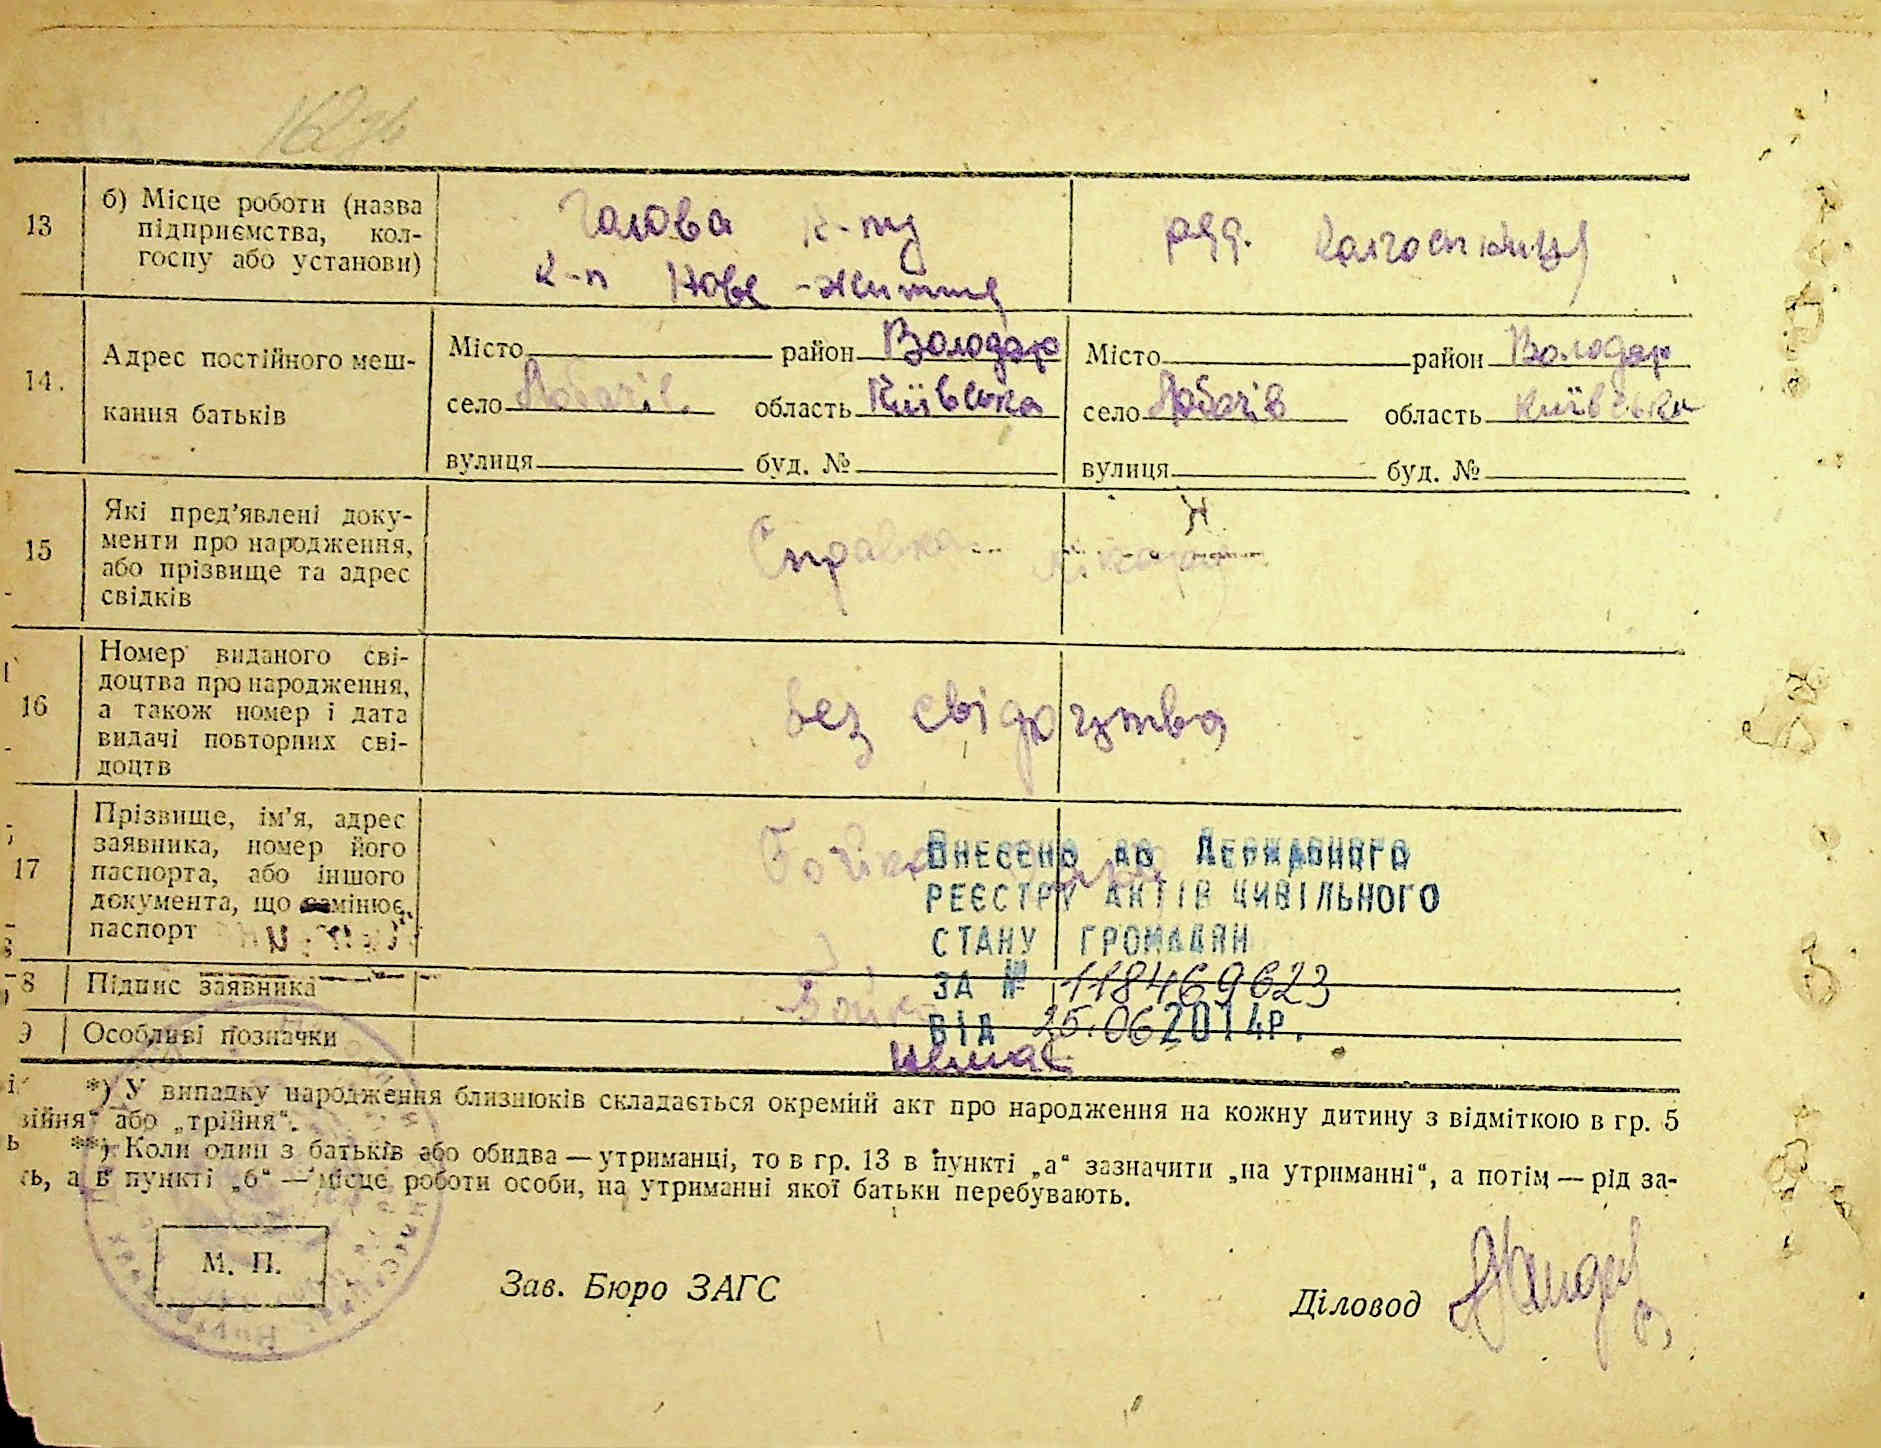 13
б) Місце роботи (назва
підприємства, кол-
госпу або установи)
Голова к-пу
к-п Нове-Життя
ряд. колгоспниця
14.
Адрес постійного меш-
кання батьків
Місто район Володар
село Лобачів область Київська
вулиця буд. №
Місто район Володар
село Лобачів область Київська
вулиця буд. №
15
Які пред’явлені доку-
менти про народження,
або прізвище та адрес
свідків
Справка лікаря
16
Номер виданого сві-
доцтва про народження,
а також номер і дата
видачі повторних сві-
доцтв
без свідоцтва
17
Прізвище, ім’я, адрес
заявника, номер його
паспорта, або іншого
документа, що замінює
паспорт
Бойко
ВНЕСЕНО ДО ДЕРЖАВНОГО
РЕЄСТРУ АКТІВ ЦИВІЛЬНОГО
СТАНУ ГРОМАДЯН
ЗА № 118469623
ВІД 25.06 2014Р.
8
Підпис заявника
Бойко
9
Особливі позначки
немає
*) У випадку народження близнюків складається окремий акт про народження на кожну дитину з відміткою в гр. 5
війня“ або „трійня“.
**) Коли один з батьків або обидва — утриманці, то в гр. 13 в пункті „а“ зазначити „на утриманні“, а потім — рід за-
ть, а в пункті „б“ — місце роботи особи, на утриманні якої батьки перебувають.
М. П.
Зав. Бюро ЗАГС
Діловод